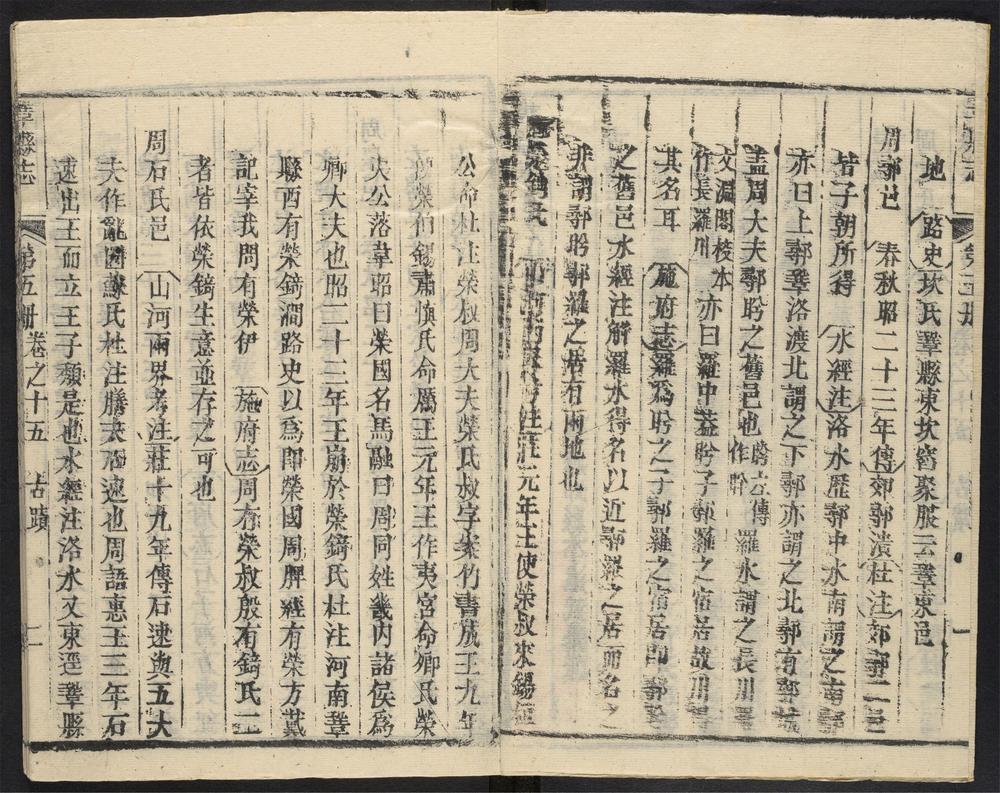 地 路史坎氏鞏縣東坎窞聚服云鞏東邑
周鄩邑 春秋昭二十三年傳郊鄩潰杜注郊鄩二邑
皆子朝所得 水經注洛水歷鄩中水南謂之南鄩
亦曰上鄩鞏洛渡北謂之下鄩亦謂之北鄩有鄩城
蓋周大夫鄩肸之舊邑也 肸左傳作 羅水謂之長川
文淵閣校本作長羅川 亦曰羅中蓋肸子鄩羅之宿居故川
其名耳 施府志羅爲肸之子鄩羅之宿居即鄩
之舊邑水經注解羅水得名以近鄩羅之居而名之
非謂鄩肸鄩羅之居有兩地也
注莊元年王使榮叔來錫
公命杜注榮叔周大夫榮氏叔字案竹書成王九年
榮伯錫肅愼氏命厲王元年王作夷宮命卿氏榮
公落韋昭曰榮國名馬融曰周同姓畿內諸侯爲
卿大夫也昭二十二年王崩於榮錡氏杜注河南鞏
縣西有榮錡澗路史以爲即榮國周髀經有榮方戴
記宰我問有榮伊 施府志周有榮叔殷有錡氏二
者皆依榮錡生意並存之可也
周石氏邑 山河兩界考注莊十九年傳石速與五大
夫作亂因蘇氏杜注膳夫石速也周語惠王三年石
速出王而立王子頹是也水經注洛水又東逕鞏縣
鞏縣志 第五册 卷之十五 古蹟 二